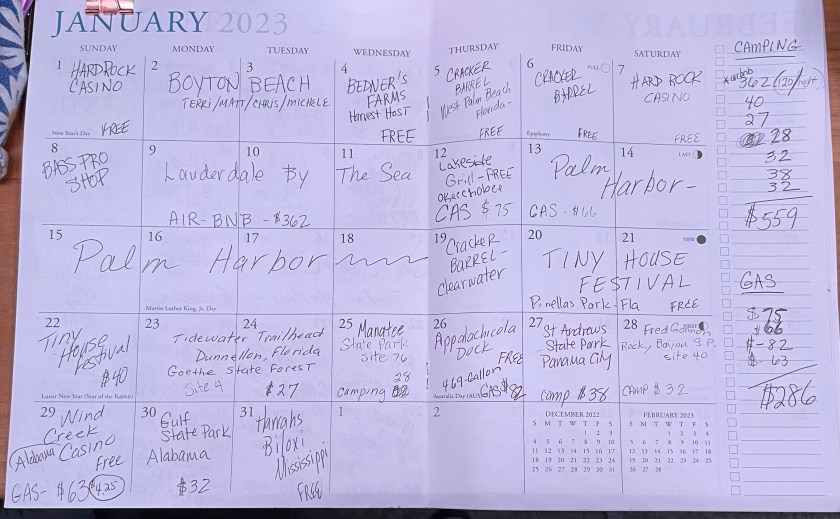 JANUARY 2023
SUNDAY MONDAY TUESDAY WEDNESDAY THURSDAY FRIDAY SATURDAY
1 HARD ROCK
CASINO
New Year's Day FREE
2 3
BOYTON BEACH
TERRI/MATT/CHRIS/MICHELE
4
BEDNER'S
FARMS
Harvest Host
FREE
5 CRACKER
BARREL
West Palm Beach
Florida-
FREE
6 FULL
CRACKER
BARREL
Epiphany FREE
7
HARD ROCK
CASINO
FREE
8
BASS PRO
SHOP
9 10 11
Lauderdale By The Sea
AIR-BNB - $362
12
Lakeside
Grill-FREE
Okeechobee
GAS $75
13 14 LAST
Palm
Harbor-
GAS - $66
15 16 17 18
Palm Harbor
Martin Luther King, Jr. Day
19
Cracker
BARREL-
Clearwater
20 21 NEW
TINY HOUSE
FESTIVAL
Pinellas Park-Fla FREE
22
Tiny
House
Festival
$40
Lunar New Year (Year of the Rabbit)
23 24
Tidewater Trailhead
Dunnellon, Florida
Goethe State Forest
Site 4 $27
25 Manatee
State Park
Site 76
28
camping
26
Appalachicola
Dock
FREE
4.69-Gallon
Australia Day (AU) GAS $82
27 St Andraws
State Park
Panama City
camp $38
28 Fred
Rocky Bayou S.P.
site 40
CAMP $32
29 Wind
Creek
Casino
Alabama
Free
GAS- $63 $4.25
30
Gulf
State Park
Alabama
$32
31
Harrahs
Biloxi
Mississippi
FREE
1
2
DECEMBER 2022
S M T W T F S
1 2 3
4 5 6 7 8 9 10
11 12 13 14 15 16 17
18 19 20 21 22 23 24
25 26 27 28 29 30 31
FEBRUARY 2023
S M T W T F S
1 2 3 4
5 6 7 8 9 10 11
12 13 14 15 16 17 18
19 20 21 22 23 24 25
26 27 28
CAMPING
*airbnb
362 (120/night)
40
27
28
32
38
32
$559
GAS
$75
$66
$-82
$-63
$286